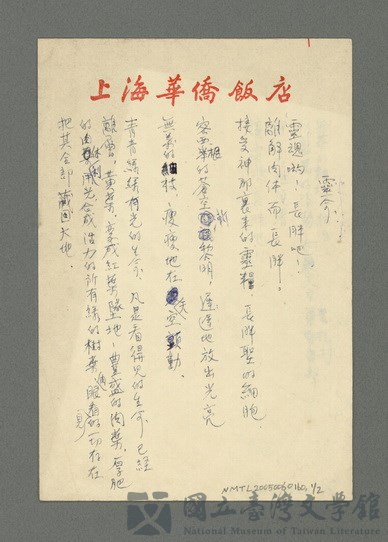 上海華僑飯店
靈命：
靈魂喲！長胖吧！
離解肉体而長胖。
接受神那裏来的靈糧，長胖聖的細胞。
容許翠的蒼空的黎明，遙遠地放出光亮
無葉的枝，瘦瘦地在天空顫動。
青青綠綠有光的生命，凡是看得見的生命，已經
黃葉，変成紅葉墜地，豐盛的肉葉，厚肥
的光合成活力的所有綠的樹葉，眼看的一切存在
把其全部，藏回大地。
NMTL20050060160, 1/2
國立臺灣文學館
National Museum of Taiwan Literature